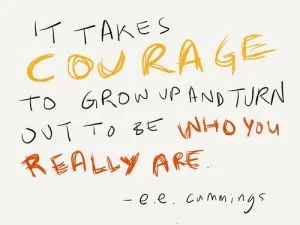 IT TAKES
COURAGE
TO GROW UP AND TURN
OUT TO BE WHO YOU
REALLY ARE.
- e.e. cummings